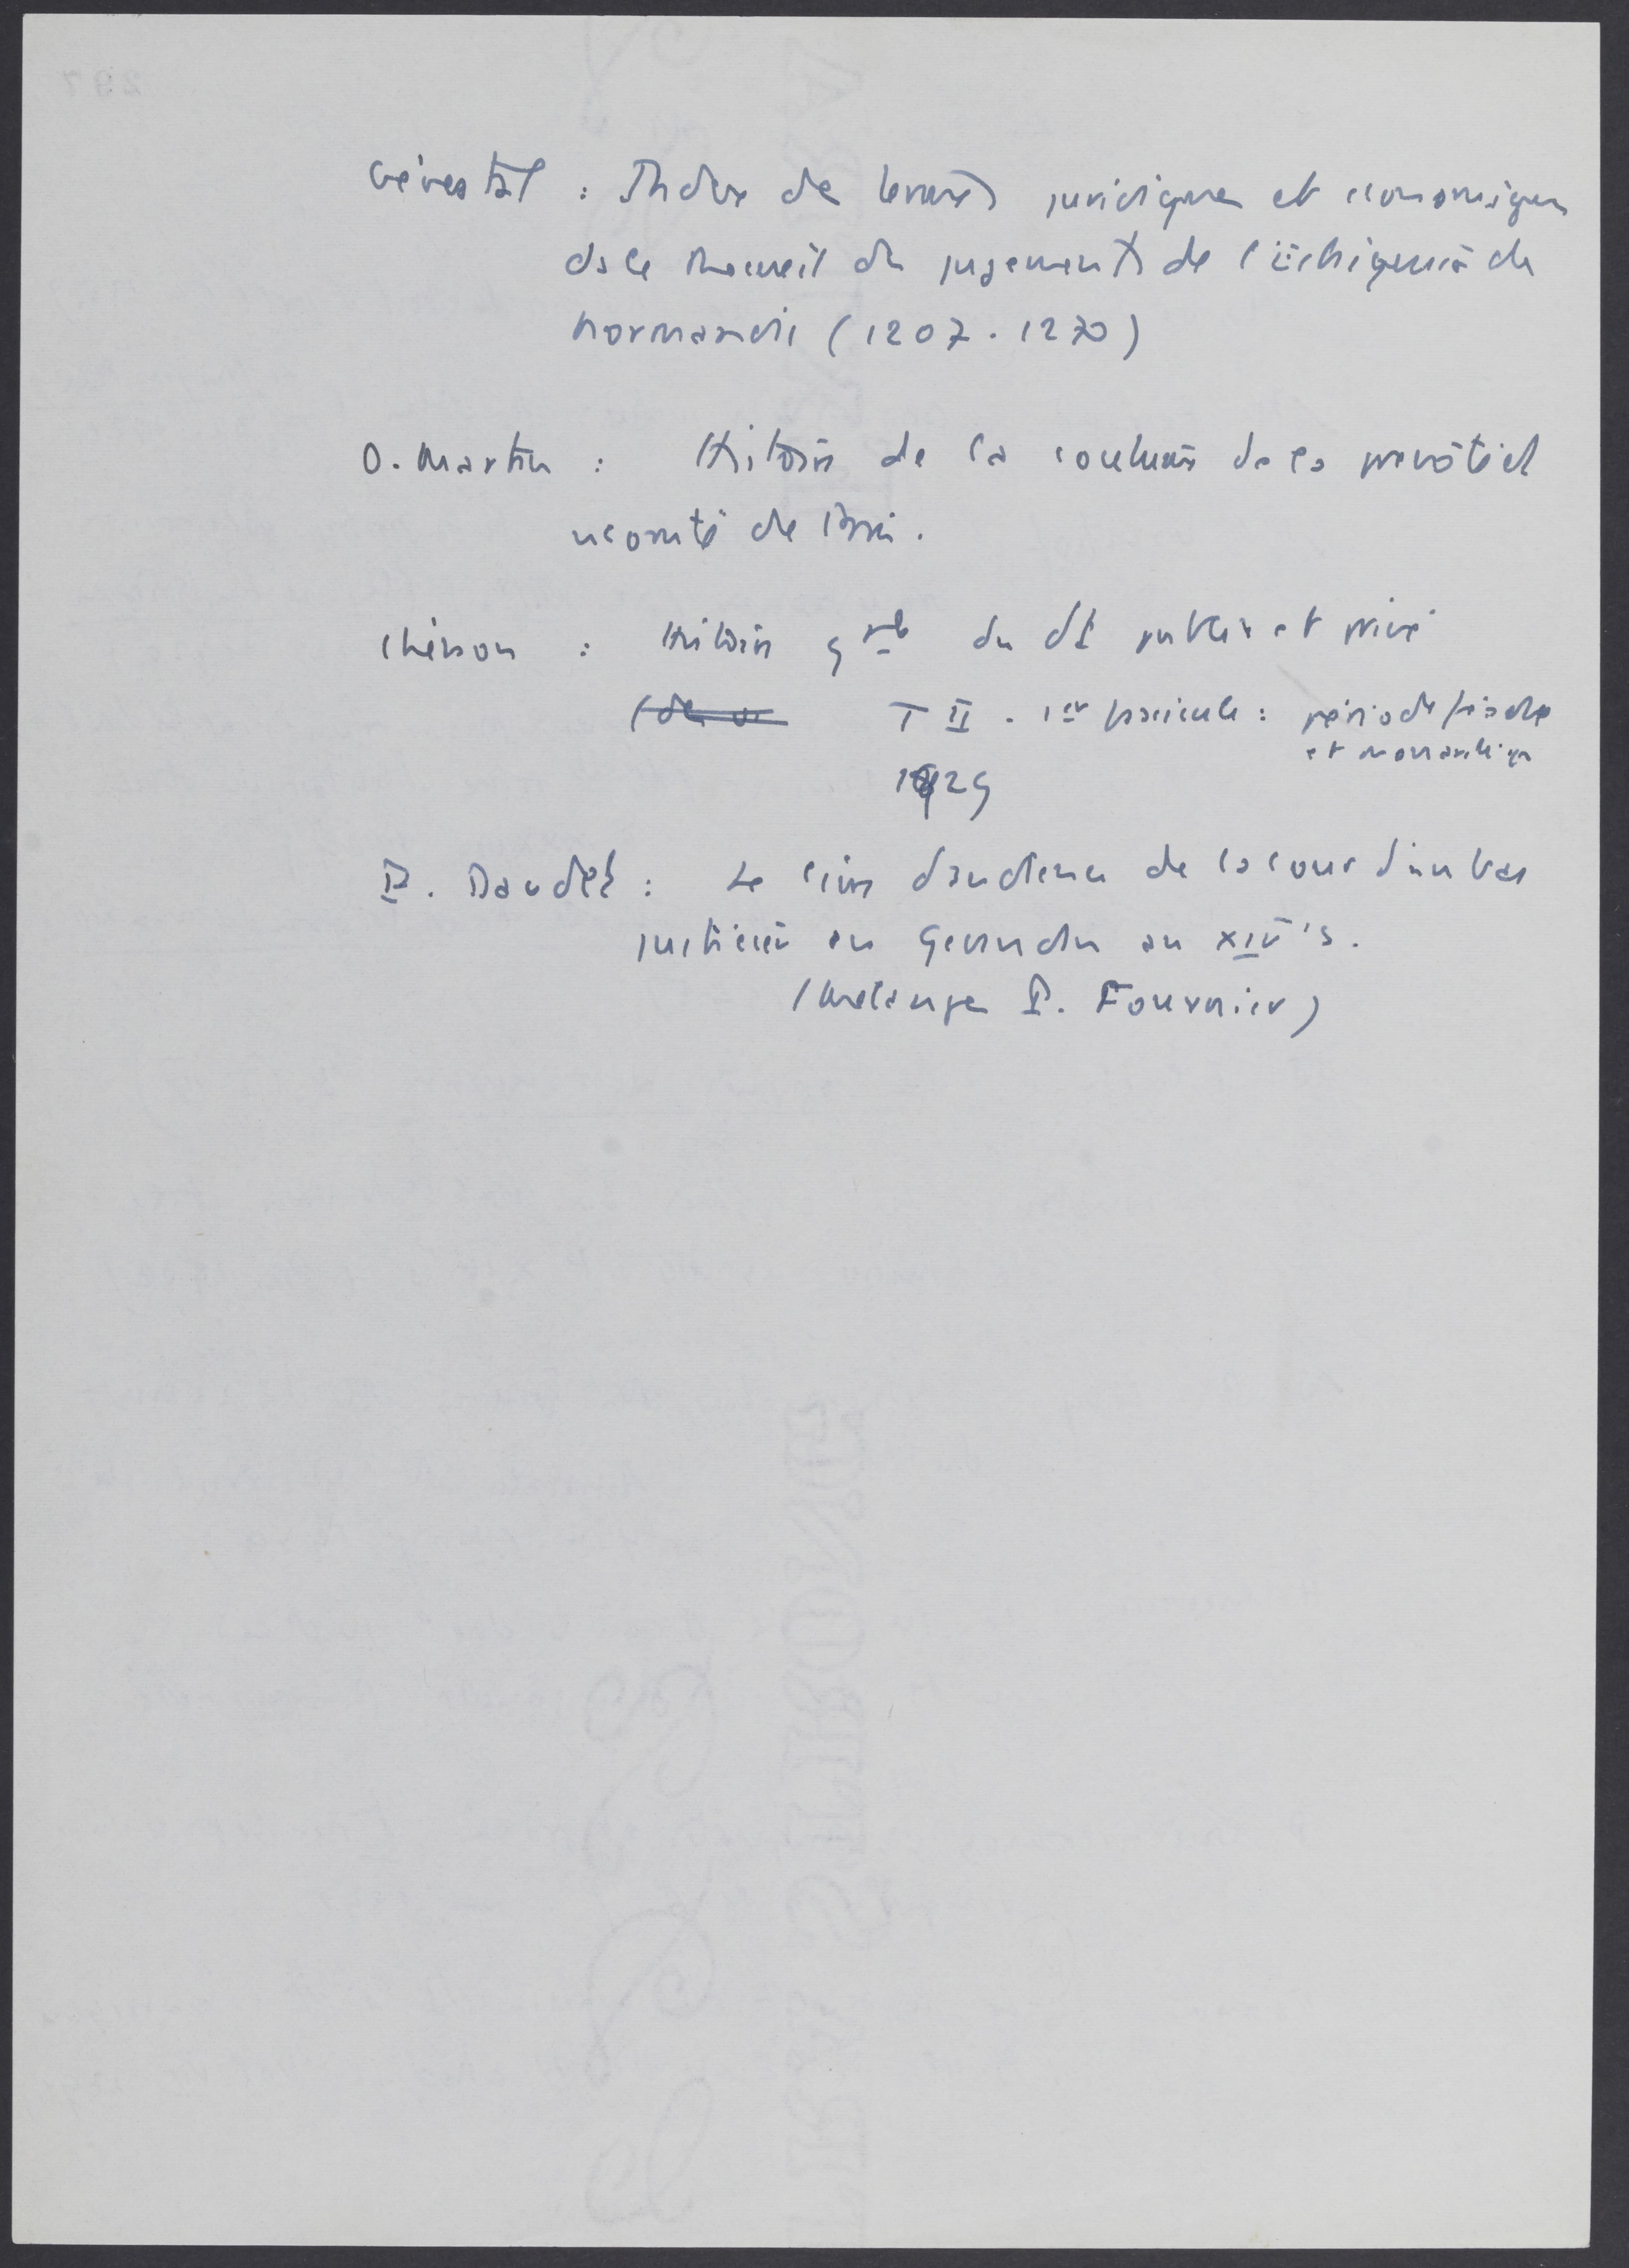 Génestal : Index des termes juridiques et économiques
ds le Recueil des jugements de l'Échiquier de
Normandie (1207-1270)
O. Martin : Histoire de la coutume de la prévôté et
vicomté de Paris.
Chénon : Histoire gale du dt public et privé
T II. 1er fascicule : période féodale
et monarchique
1929
P. Daudet : Le livre d'audience de la cour d'un bas
justicier en Gévaudan au XIVe s.
(Mélanges P. Fournier)